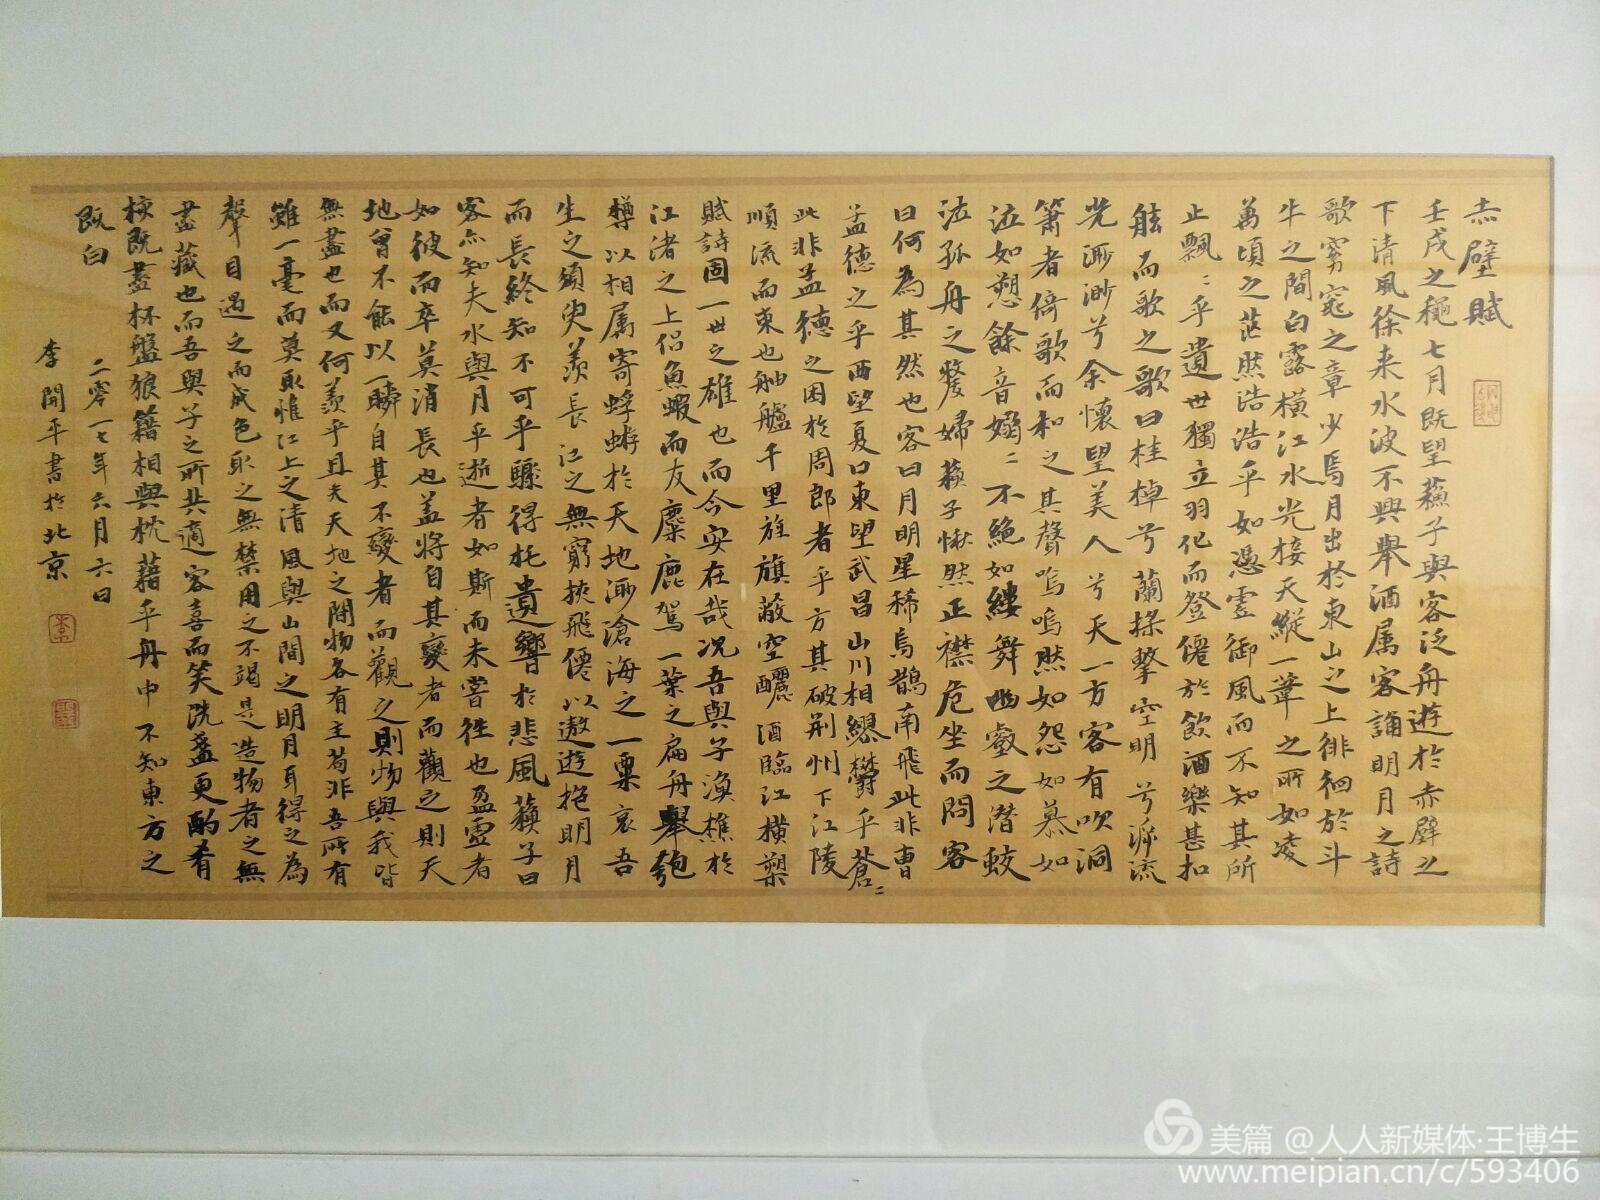 赤壁賦
壬戌之龝七月既望蘓子與客泛舟遊於赤壁之
下清風徐来水波不興舉酒属客誦明月之詩
歌窈窕之章少焉月出於東山之上徘徊於斗
牛之間白露橫江水光接天縱一葦之所如凌
萬頃之茫然浩浩乎如憑虛御風而不知其所
止飄〻乎遺世獨立羽化而登僊於飲酒樂甚扣
舷而歌之歌曰桂棹兮蘭槳擊空明兮泝流
光渺渺兮余懷望美人兮天一方客有吹洞
簫者倚歌而和之其聲嗚嗚然如怨如慕如
泣如愬餘音嫋〻不絕如縷舞幽壑之潛蛟
泣孤舟之嫠婦蘓子愀然正襟危坐而問客
曰何為其然也客曰月明星稀烏鵲南飛此非曹
孟德之乎西望夏口東望武昌山川相繆欝乎蒼〻
此非孟德之困於周郎者乎方其破荆州下江陵
順流而東也舳艫千里旌旗蔽空釃酒臨江橫槊
賦詩固一世之雄也而今安在哉况吾與子漁樵於
江渚之上侣魚蝦而友麋鹿駕一葉之扁舟舉匏
樽以相属寄蜉蝣於天地渺滄海之一粟哀吾
生之須臾羨長江之無窮挾飛僊以遨遊抱明月
而長終知不可乎驟得托遺響於悲風蘓子曰
客亦知夫水與月乎逝者如斯而未嘗往也盈虛者
如彼而卒莫消長也盖將自其變者而觀之則天
地曾不能以一瞬自其不變者而觀之則物與我皆
無盡也而又何羨乎且夫天地之間物各有主苟非吾所有
雖一毫而莫取惟江上之清風與山間之明月耳得之為
聲目遇之而成色取之無禁用之不竭是造物者之無
盡藏也而吾與子之所共適客喜而笑洗盞更酌肴
核既盡杯盤狼籍相與枕藉乎舟中不知東方之
既白
二零一七年六月六日
李開平書於北京
美篇 @人人新媒体·王博生
www.meipian.cn/c/593406